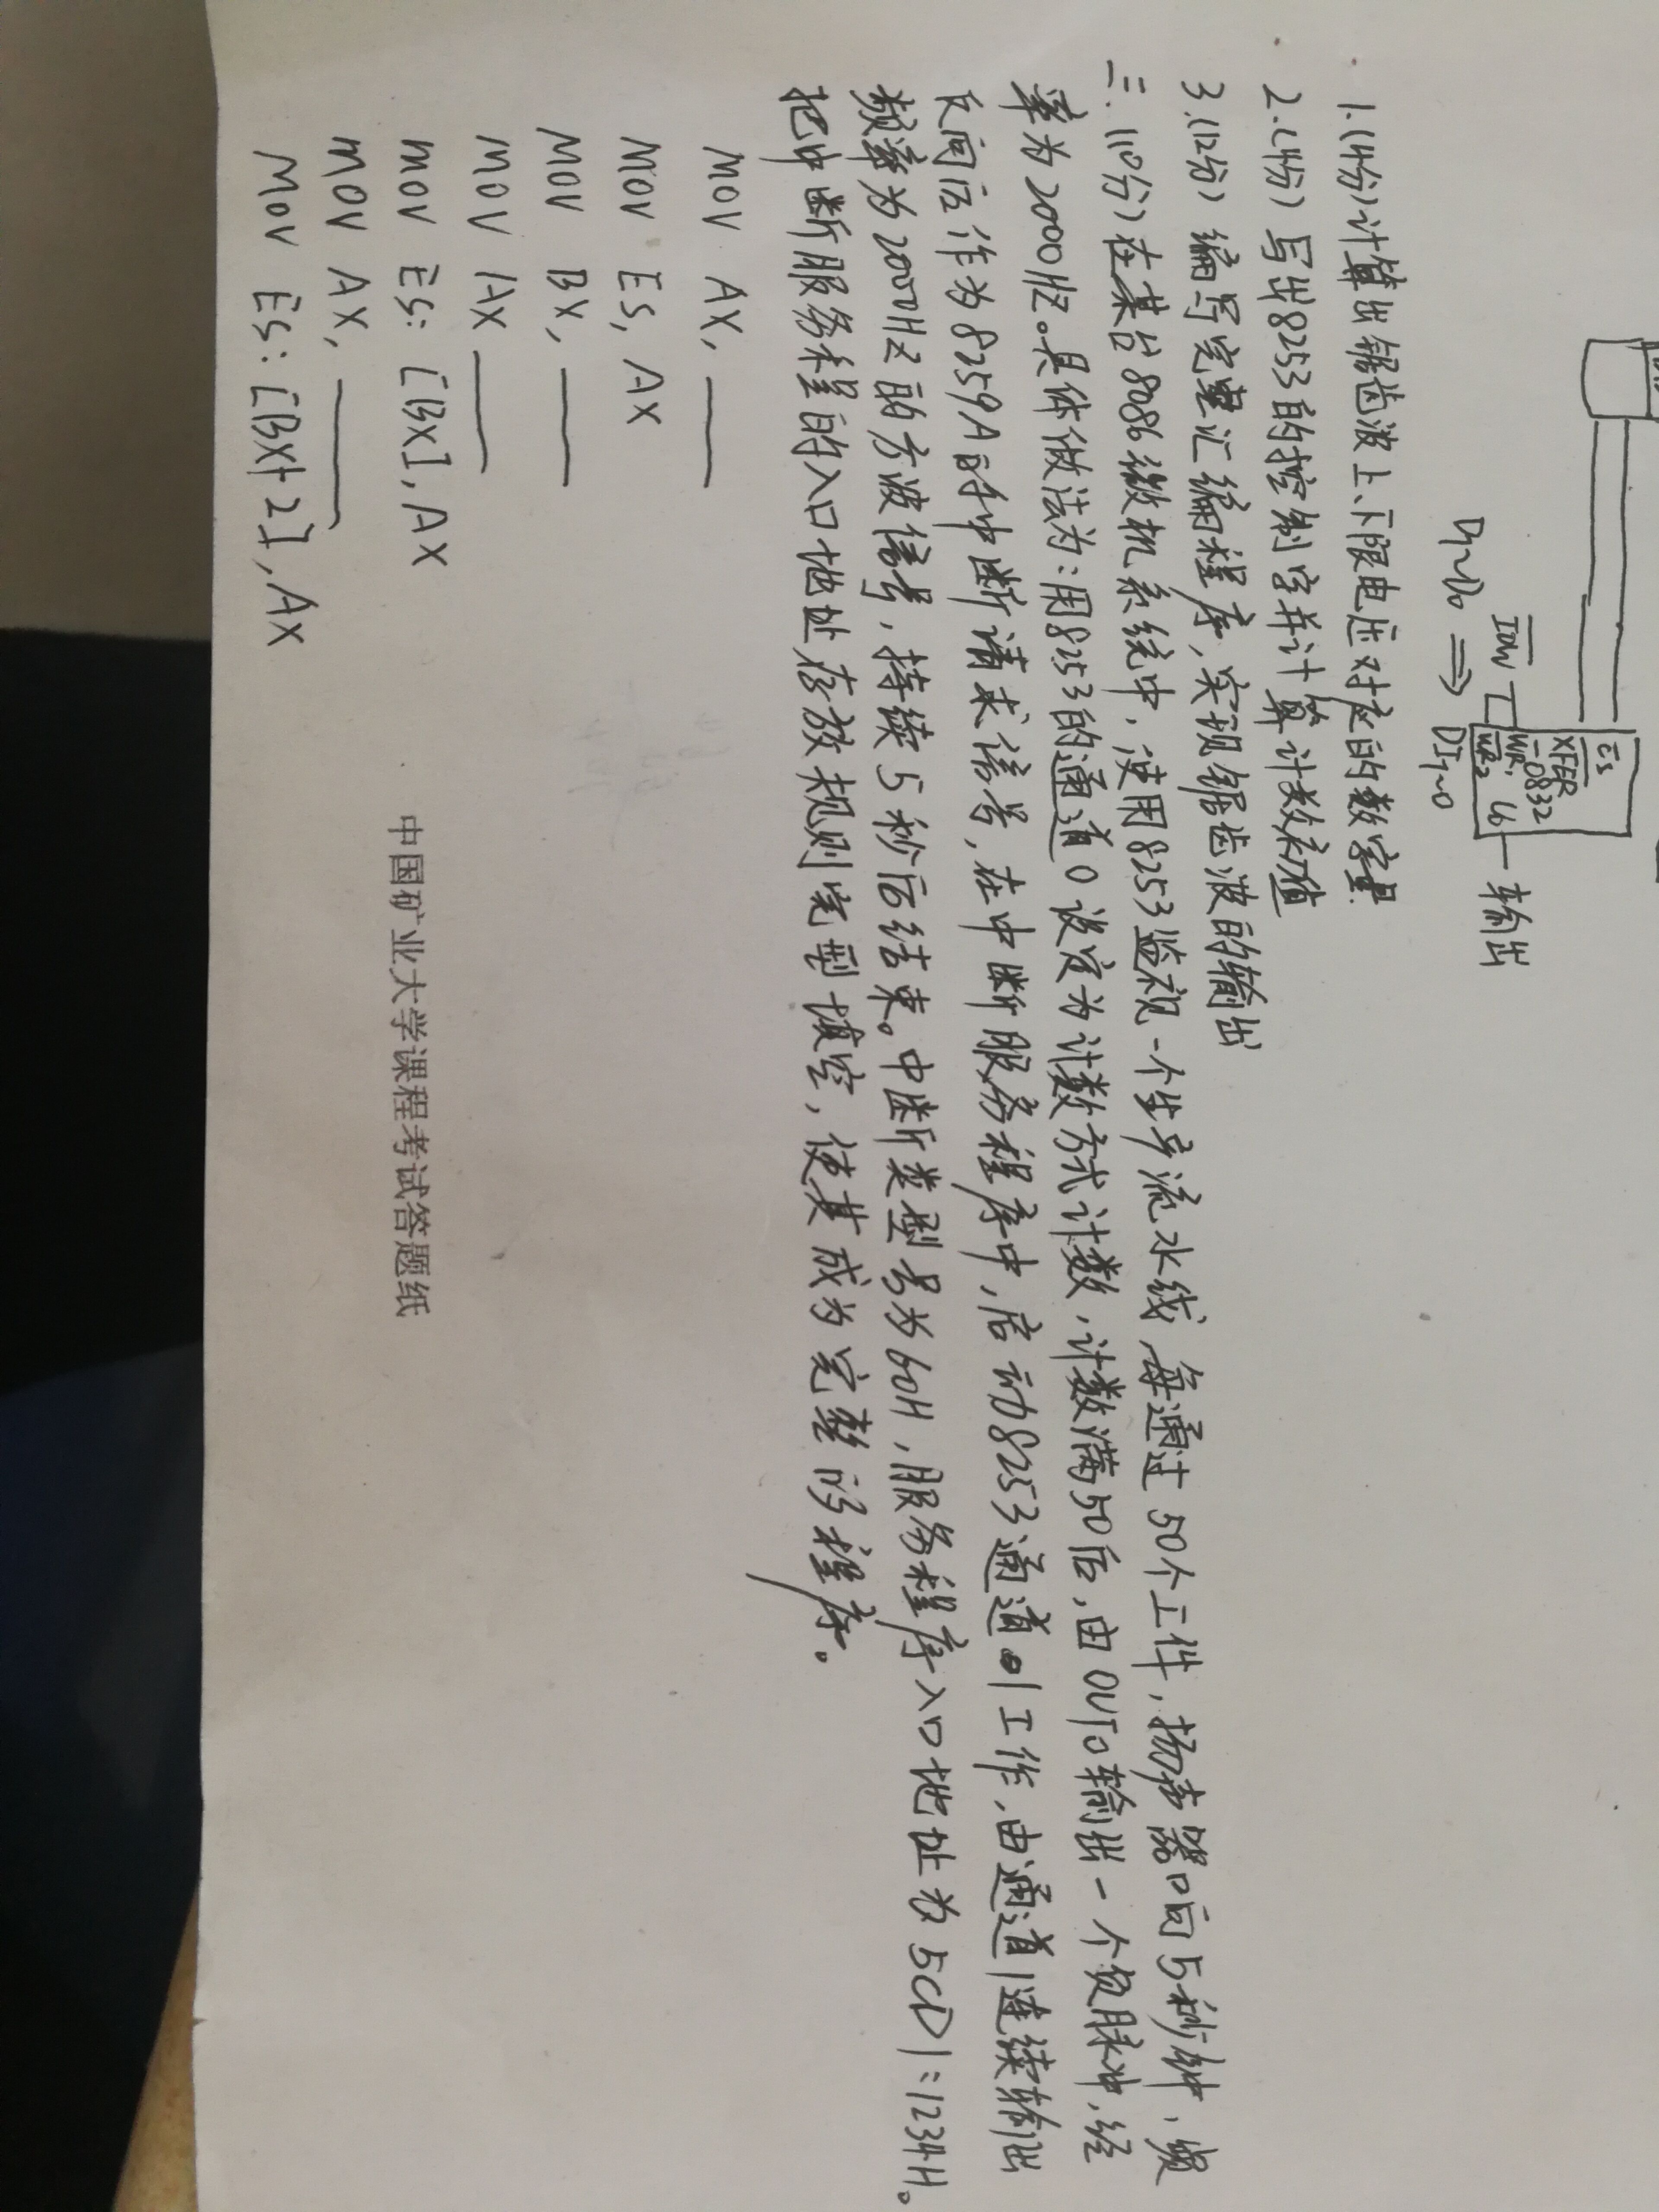 CS
XFER
0832
IOW WR1 I0 输出
WR2
D7~D0 ⇒ DI7~0
1.(4分)计算出锯齿波上、下限电压对应的数字量.
2.(4分) 写出8253的控制字并计算计数初值
3.(12分) 编写完整汇编程序,实现锯齿波的输出
三.(10分)在某台8086微机系统中,使用8253监视一个生产流水线,每通过50个工件,扬声器响5秒钟,频
率为2000HZ。具体做法为:用8253的通道0设定为计数方式计数,计数满50后,由OUT0输出一个负脉冲,经
反向后作为8259A的中断请求信号,在中断服务程序中,启动8253通道1工作,由通道1连续输出
频率为2000HZ的方波信号,持续5秒后结束。中断类型号为60H,服务程序入口地址为5CD1:1234H。
把中断服务程的入口地址存放规则完型填空,使其成为完整的程序。
MOV AX, ____
MOV ES, AX
MOV BX, ____
MOV AX ____
MOV ES: [BX], AX
MOV AX, ____
MOV ES: [BX+2], AX
中国矿业大学课程考试答题纸